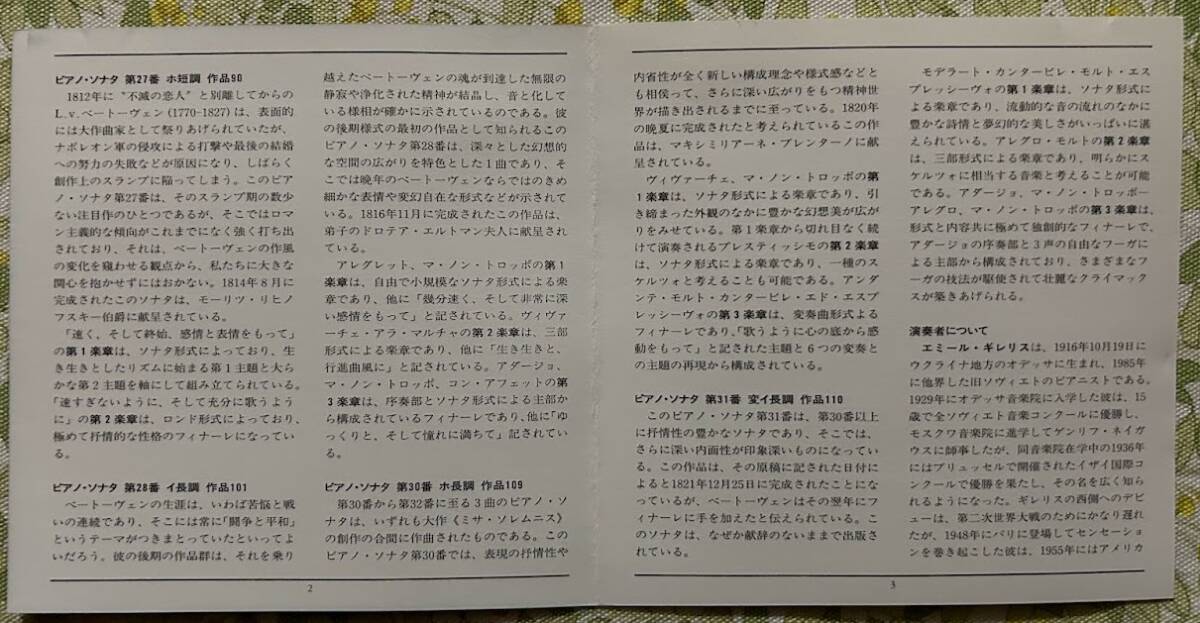 ピアノ・ソナタ 第27番 ホ短調 作品90
1812年に〝不滅の恋人〟と別離してからの
L.v.ベートーヴェン(1770-1827)は、表面的
には大作曲家として祭りあげられていたが、
ナポレオン軍の侵攻による打撃や最後の結婚
への努力の失敗などが原因になり、しばらく
創作上のスランプに陥ってしまう。このピア
ノ・ソナタ第27番は、そのスランプ期の数少
ない注目作のひとつであるが、そこではロマ
ン主義的な傾向がこれまでになく強く打ち出
されており、それは、ベートーヴェンの作風
の変化を窺わせる観点から、私たちに大きな
関心を抱かせずにはおかない。1814年8月に
完成されたこのソナタは、モーリツ・リヒノ
フスキー伯爵に献呈されている。
「速く、そして終始、感情と表情をもって」
の第1楽章は、ソナタ形式によっており、生
き生きとしたリズムに始まる第1主題と大ら
かな第2主題を軸にして組み立てられている。
「速すぎないように、そして充分に歌うよう
に」の第2楽章は、ロンド形式によっており、
極めて抒情的な性格のフィナーレになってい
る。
ピアノ・ソナタ 第28番 イ長調 作品101
ベートーヴェンの生涯は、いわば苦悩と戦
いの連続であり、そこには常に「闘争と平和」
というテーマがつきまとっていたといってよ
いだろう。彼の後期の作品群は、それを乗り
越えたベートーヴェンの魂が到達した無限の
静寂や浄化された精神が結晶し、音と化して
いる様相が確かに示されているのである。彼
の後期様式の最初の作品として知られるこの
ピアノ・ソナタ第28番は、深々とした幻想的
な空間の広がりを特色とした1曲であり、そ
こでは晩年のベートーヴェンならではのきめ
細かな表情や変幻自在な形式などが示されて
いる。1816年11月に完成されたこの作品は、
弟子のドロテア・エルトマン夫人に献呈され
ている。
アレグレット、マ・ノン・トロッポの第1
楽章は、自由で小規模なソナタ形式による楽
章であり、他に「幾分速く、そして非常に深
い感情をもって」と記されている。ヴィヴァ
ーチェ・アラ・マルチャの第2楽章は、三部
形式による楽章であり、他に「生き生きと、
行進曲風に」と記されている。アダージョ、
マ・ノン・トロッポ、コン・アフェットの第
3楽章は、序奏部とソナタ形式による主部か
ら構成されているフィナーレであり、他に「ゆ
っくりと、そして憧れに満ちて」記されてい
る。
ピアノ・ソナタ 第30番 ホ長調 作品109
第30番から第32番に至る3曲のピアノ・ソ
ナタは、いずれも大作《ミサ・ソレムニス》
の創作の合間に作曲されたものである。この
ピアノ・ソナタ第30番では、表現の抒情性や
2
内省性が全く新しい構成理念や様式感などと
も相俟って、さらに深い広がりをもつ精神世
界が描き出されるまでに至っている。1820年
の晩夏に完成されたと考えられているこの作
品は、マキシミリアーネ・ブレンターノに献
呈されている。
ヴィヴァーチェ、マ・ノン・トロッポの第
1楽章は、ソナタ形式による楽章であり、引
き締まった外観のなかに豊かな幻想美が広が
りをみせている。第1楽章から切れ目なく続
けて演奏されるプレスティッシモの第2楽章
は、ソナタ形式による楽章であり、一種のス
ケルツォと考えることも可能である。アンダ
ンテ・モルト・カンタービレ・エド・エスプ
レッシーヴォの第3楽章は、変奏曲形式よる
フィナーレであり、「歌うように心の底から感
動をもって」と記された主題と6つの変奏と
の主題の再現から構成されている。
ピアノ・ソナタ 第31番 変イ長調 作品110
このピアノ・ソナタ第31番は、第30番以上
に抒情性の豊かなソナタであり、そこでは、
さらに深い内面性が印象深いものになってい
る。この作品は、その原稿に記された日付に
よると1821年12月25日に完成されたことにな
っているが、ベートーヴェンはその翌年にフ
ィナーレに手を加えたと伝えられている。こ
のソナタは、なぜか献辞のないままで出版さ
れている。
モデラート・カンタービレ・モルト・エス
プレッシーヴォの第1楽章は、ソナタ形式に
よる楽章であり、流動的な音の流れのなかに
豊かな詩情と夢幻的な美しさがいっぱいに湛
えられている。アレグロ・モルトの第2楽章
は、三部形式による楽章であり、明らかにス
ケルツォに相当する音楽と考えることが可能
である。アダージョ、マ・ノン・トロッポ—
アレグロ、マ・ノン・トロッポの第3楽章は、
形式と内容共に極めて独創的なフィナーレで、
アダージョの序奏部と3声の自由なフーガに
よる主部から構成されており、さまざまなフ
ーガの技法が駆使されて壮麗なクライマック
スが築きあげられる。
演奏者について
エミール・ギレリスは、1916年10月19日に
ウクライナ地方のオデッサに生まれ、1985年
に他界した旧ソヴィエトのピアニストである。
1929年にオデッサ音楽院に入学した彼は、15
歳で全ソヴィエト音楽コンクールに優勝し、
モスクワ音楽院に進学してゲンリフ・ネイガ
ウスに師事したが、同音楽院在学中の1936年
にはブリュッセルで開催されたイザイ国際コ
ンクールで優勝を果たし、その名を広く知ら
れるようになった。ギレリスの西側へのデビ
ューは、第二次世界大戦のためにかなり遅れ
たが、1948年にパリに登場してセンセーショ
ンを巻き起こした彼は、1955年にはアメリカ
3